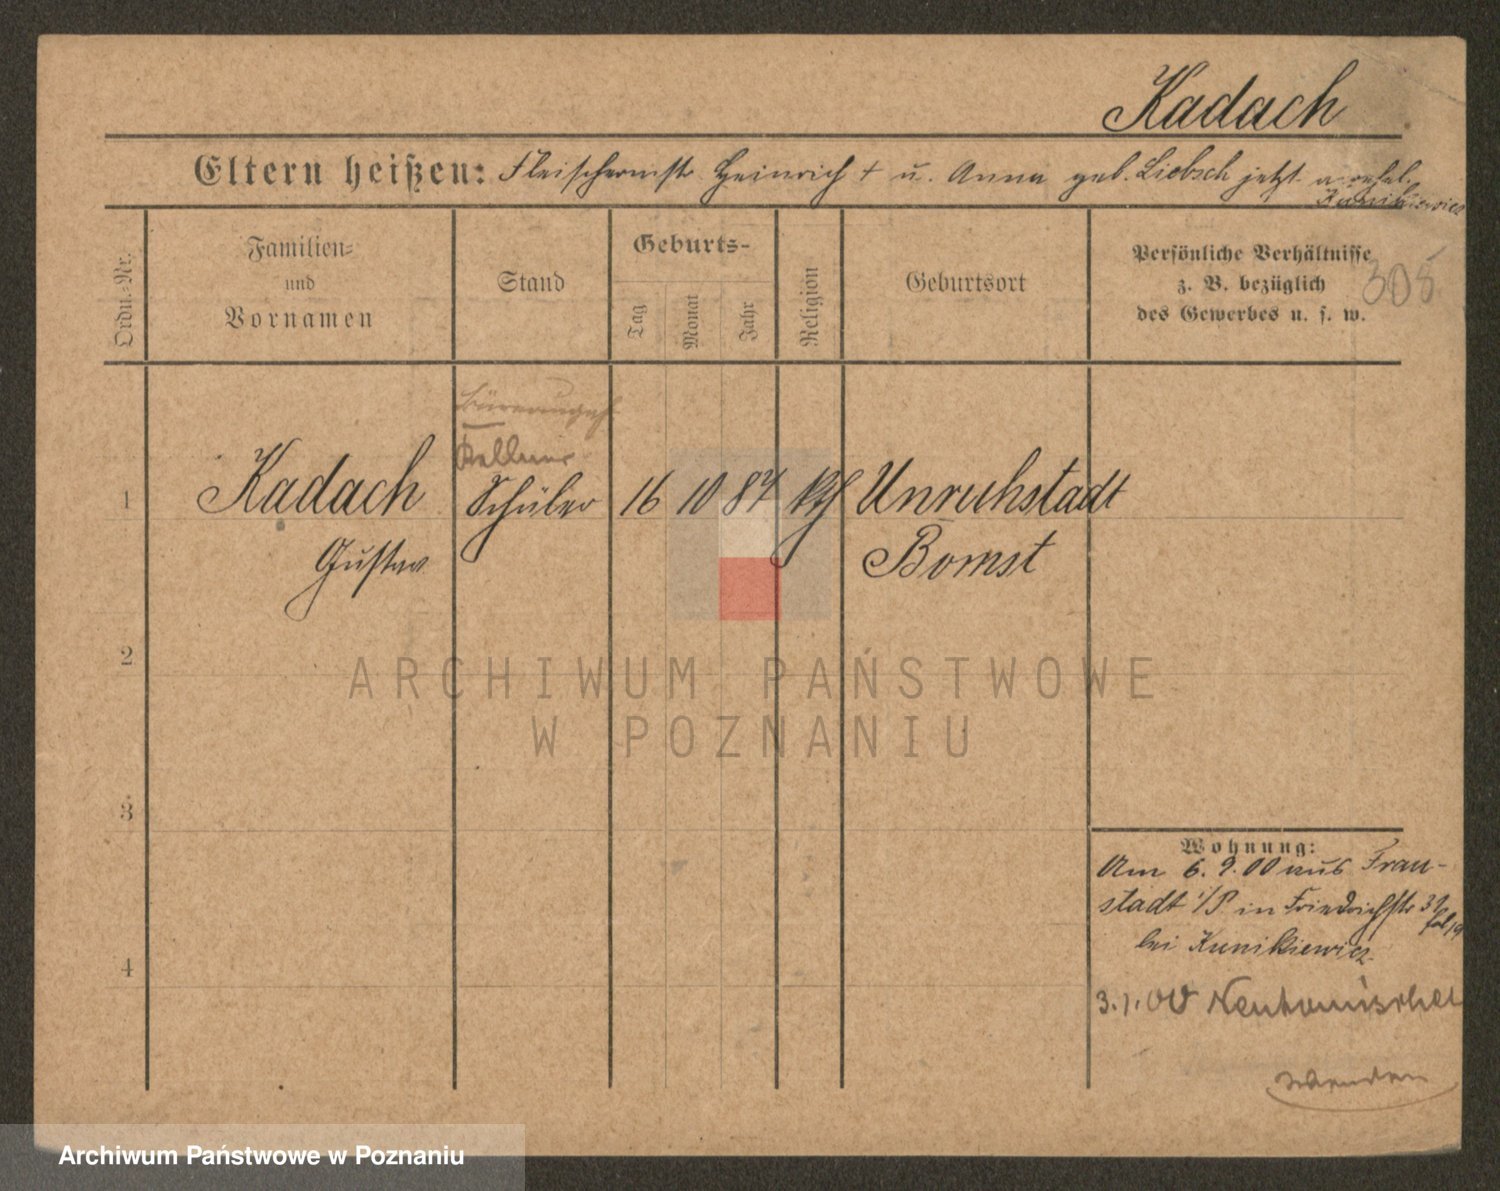 Kadach
Eltern heißen: Fleischermstr Heinrich † u. Anna geb. Liebsch jetzt
Kunikiewicz
305
Ordn.-Nr.
Familien-
und
Vornamen
Stand
Geburts-
Tag
Monat
Jahr
Religion
Geburtsort
Persönliche Verhältnisse
z. B. bezüglich
des Gewerbes u. s. w.
Kellner
1 Kadach Schüler 16 10 87 kth Unruhstadt
Gustav Bomst
2
3
4
Wohnung:
Am 6. 9. 00 aus Frau-
stadt i/P. in Friedrichstr 31
bei Kunikiewicz
3.1.00 Neutomischel
wenden
ARCHIWUM PAŃSTWOWE
W POZNANIU
Archiwum Państwowe w Poznaniu